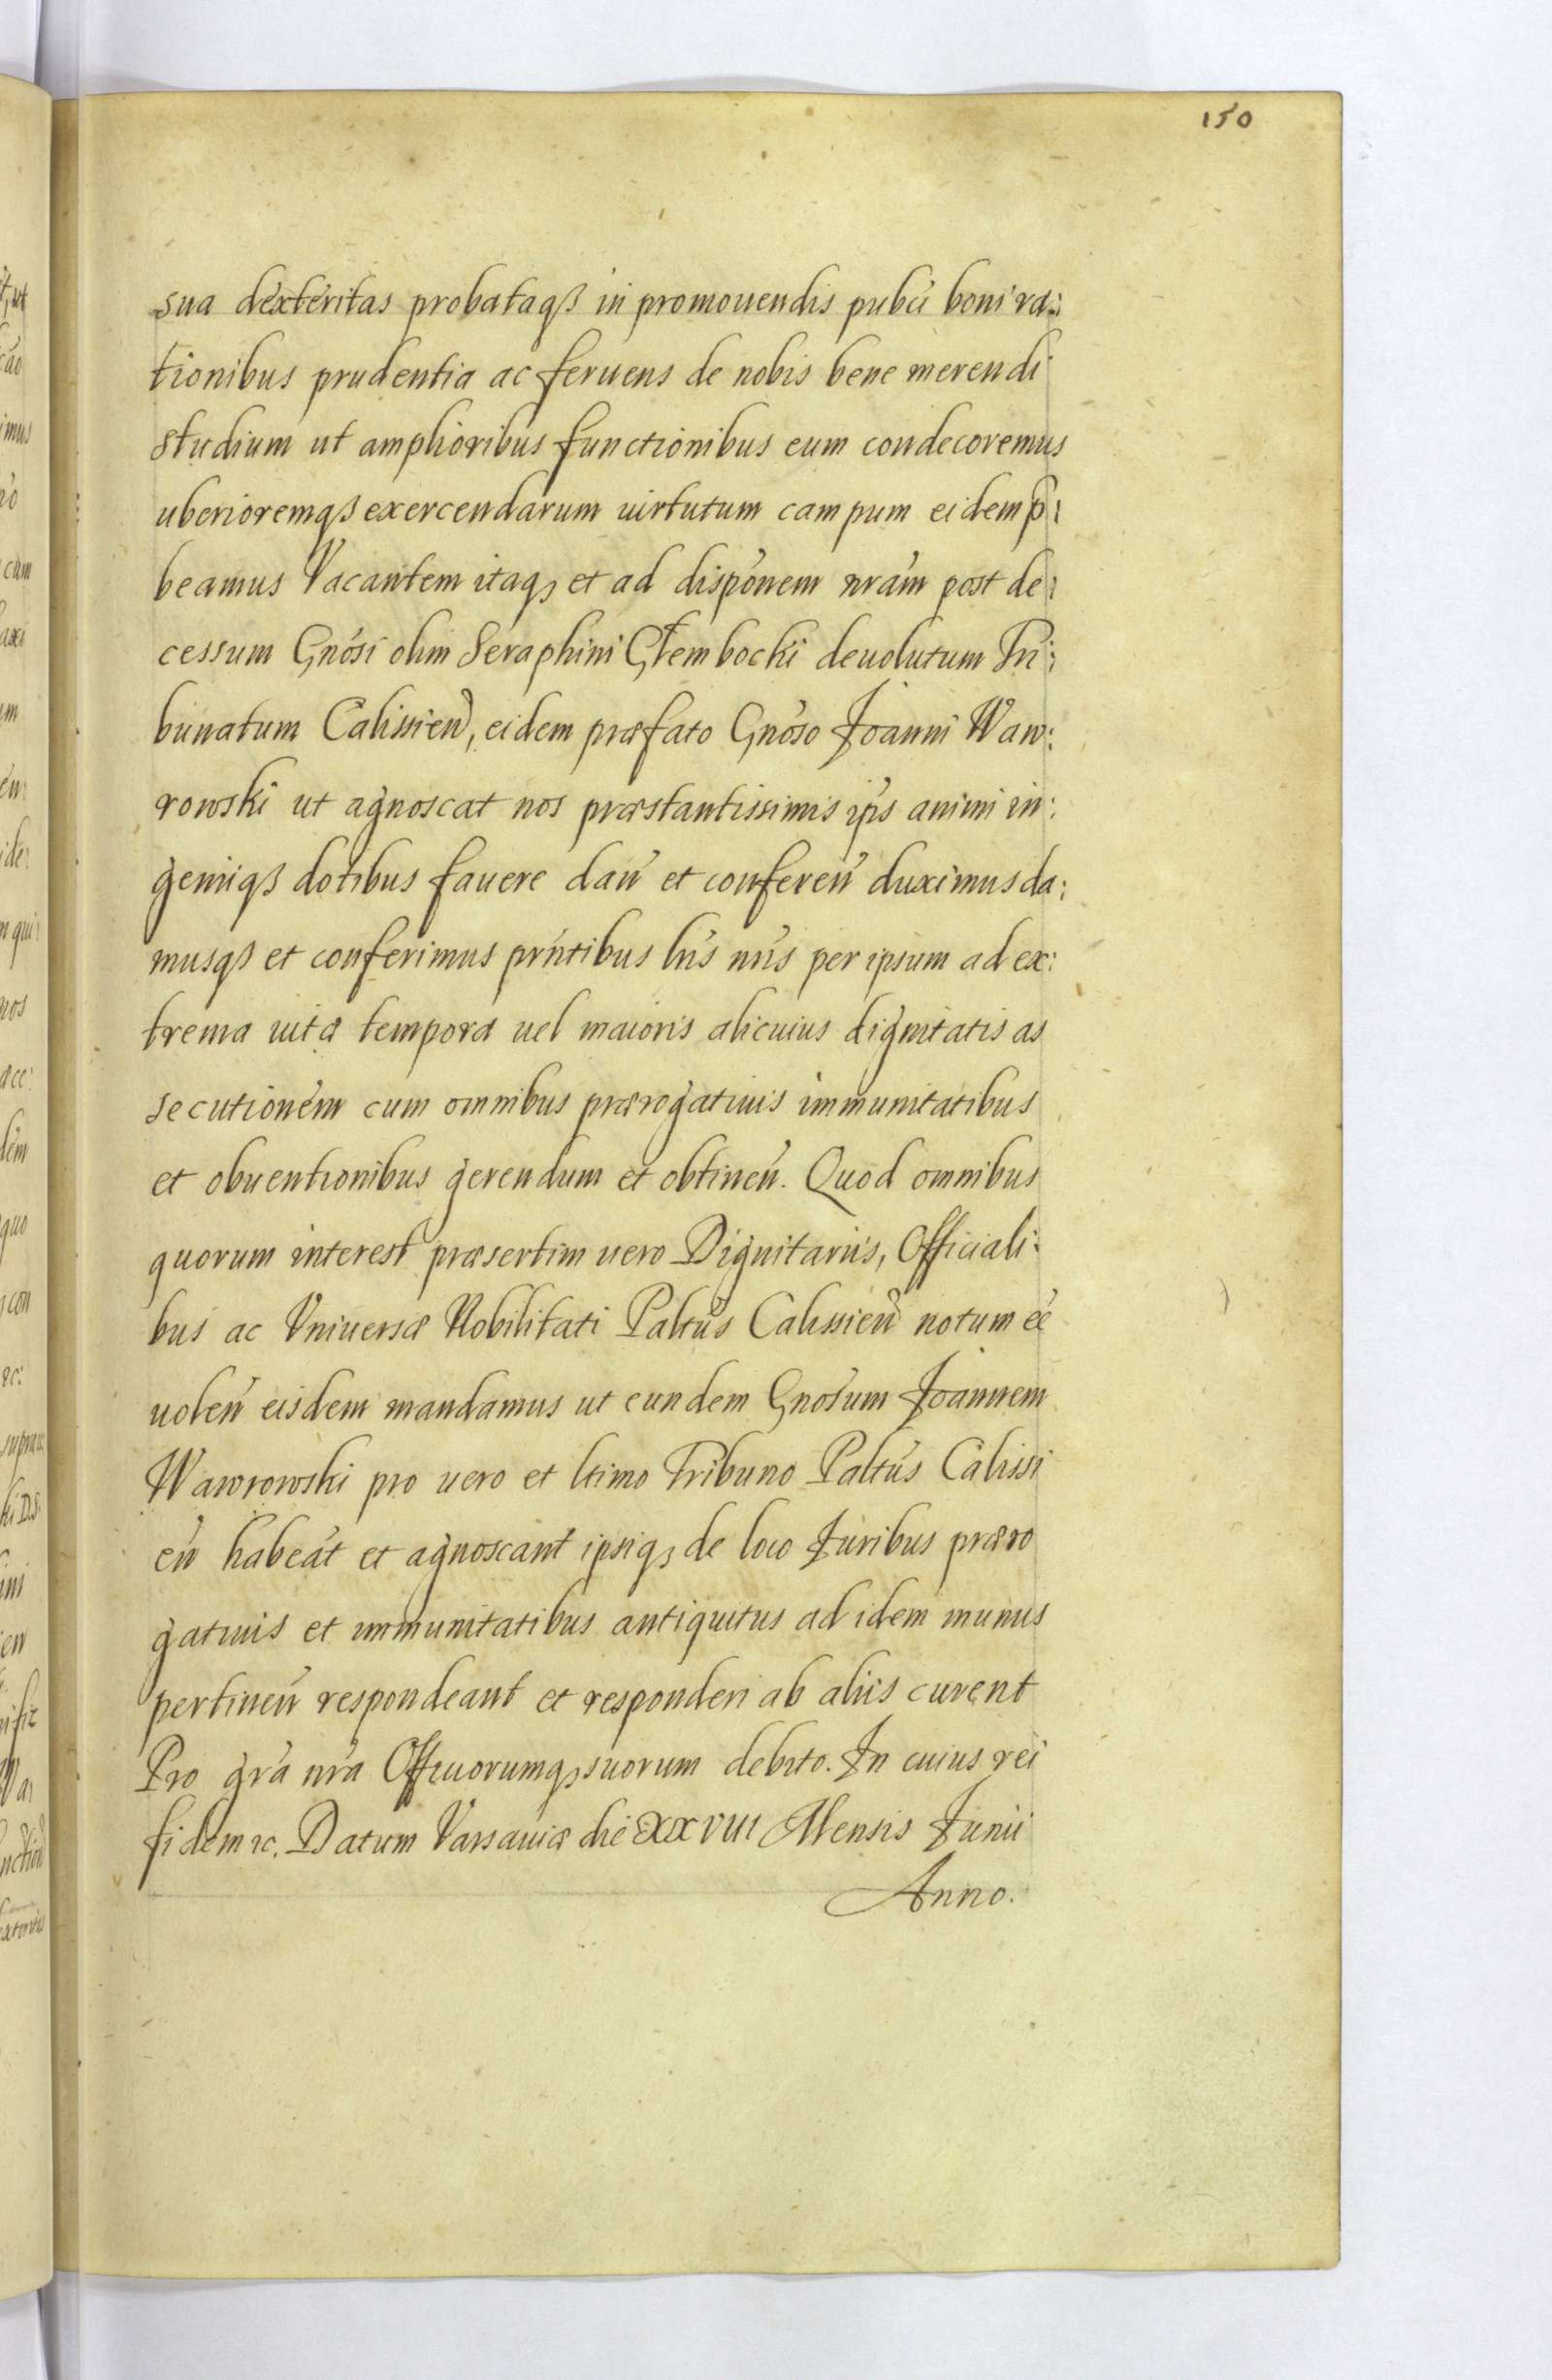 150
sua dexteritas probataqß in promouendis pubci boni ra:
tionibus prudentia ac feruens de nobis bene merendi
studium ut amplioribus functionibus eum condecoremus
uberioremqß exercendarum uirtutum campum eidem p̃:
beamus Vacantem itaq, et ad disponem nram post de:
cessum Gnosi olim Seraphini Głembockii deuolutum Tri:
bunatum Calissien, eidem præfato Gnoso Joanni Waw:
rowski ut agnoscat nos præstantissimis ipis animi in:
geniiqß dotibus fauere dan et conferen duximus da:
musqß et conferimus prntibus lris nris per ipsum ad ex:
trema uitæ tempora uel maioris alicuius dignitatis as
secutionem cum omnibus prærogatiuis immunitatibus
et obuentionibus gerendum et obtinen. Quod omnibus
quorum interest præsertim uero Dignitariis, Officiali:
bus ac Vniuersæ Nobilitati Paltus Calissien notum eé
uolen eisdem mandamus ut eundem Gnosum Joannem
Wawrowski pro uero et ltimo Tribuno Paltus Calissi
en habeat et agnoscant ipsiq, de loco Juribus præro
gatiuis et immunitatibus antiquitus ad idem munus
pertinen respondeant et responderi ab aliis curent
Pro gra nra Officiorumq, suorum debito. In cuius rei
fidem &c. Datum Varsauiæ die XXVIII Mensis Junii
Anno.